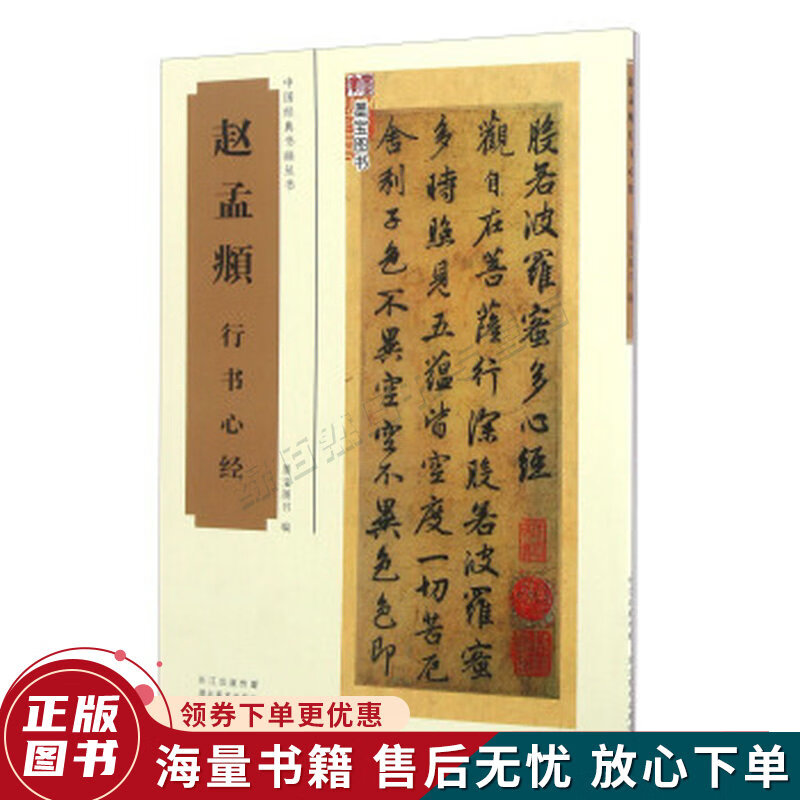 中国经典书画丛书
赵孟頫
行书心经
墨宝图书 编
墨宝图书
般若波羅蜜多心經
觀自在菩薩行深般若波羅蜜
多時照見五蘊皆空度一切苦厄
舍利子色不異空空不異色色即
长江出版传媒
正版
图书
领券下单更优惠
海量书籍 售后无忧 放心下单